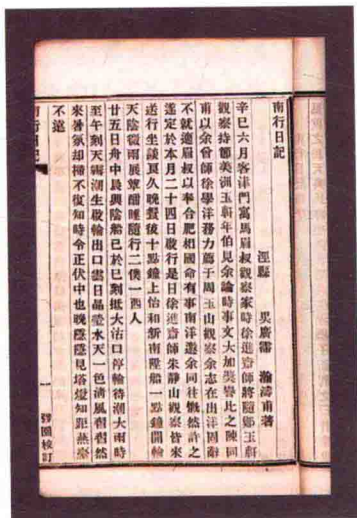 南行日記
涇縣 吳廣霈 瀚濤甫著
辛巳六月客津門寓馬眉叔觀察家時徐進齋師將隨鄭玉軒
觀察持節美洲玉軒年伯見余論時事文大加獎譽比之陳同
甫以余曾師徐學洋務力薦于周玉山觀察余志在出洋固辭
不就適眉叔以奉合肥相國命有事南洋邀余同往慨然許之
遂定於本月二十四日啟行是日徐進齋師朱靜山觀察皆來
送行坐談良久晚餐後十點鐘上怡和新南陞船一點鐘開輪
天陰微雨展簟酣睡隨行二僕一西人
廿五日舟中晨興陰船已於巳刻抵大沽口停輪待潮大雨時
至午刻天霽潮生啟輪出口雲日晶瑩水天一色清風翛然
來暑氛却掃不復知時令正伏中也晚隱隱見塔燈知距燕臺
不遠
南行日記
一
弢園校訂